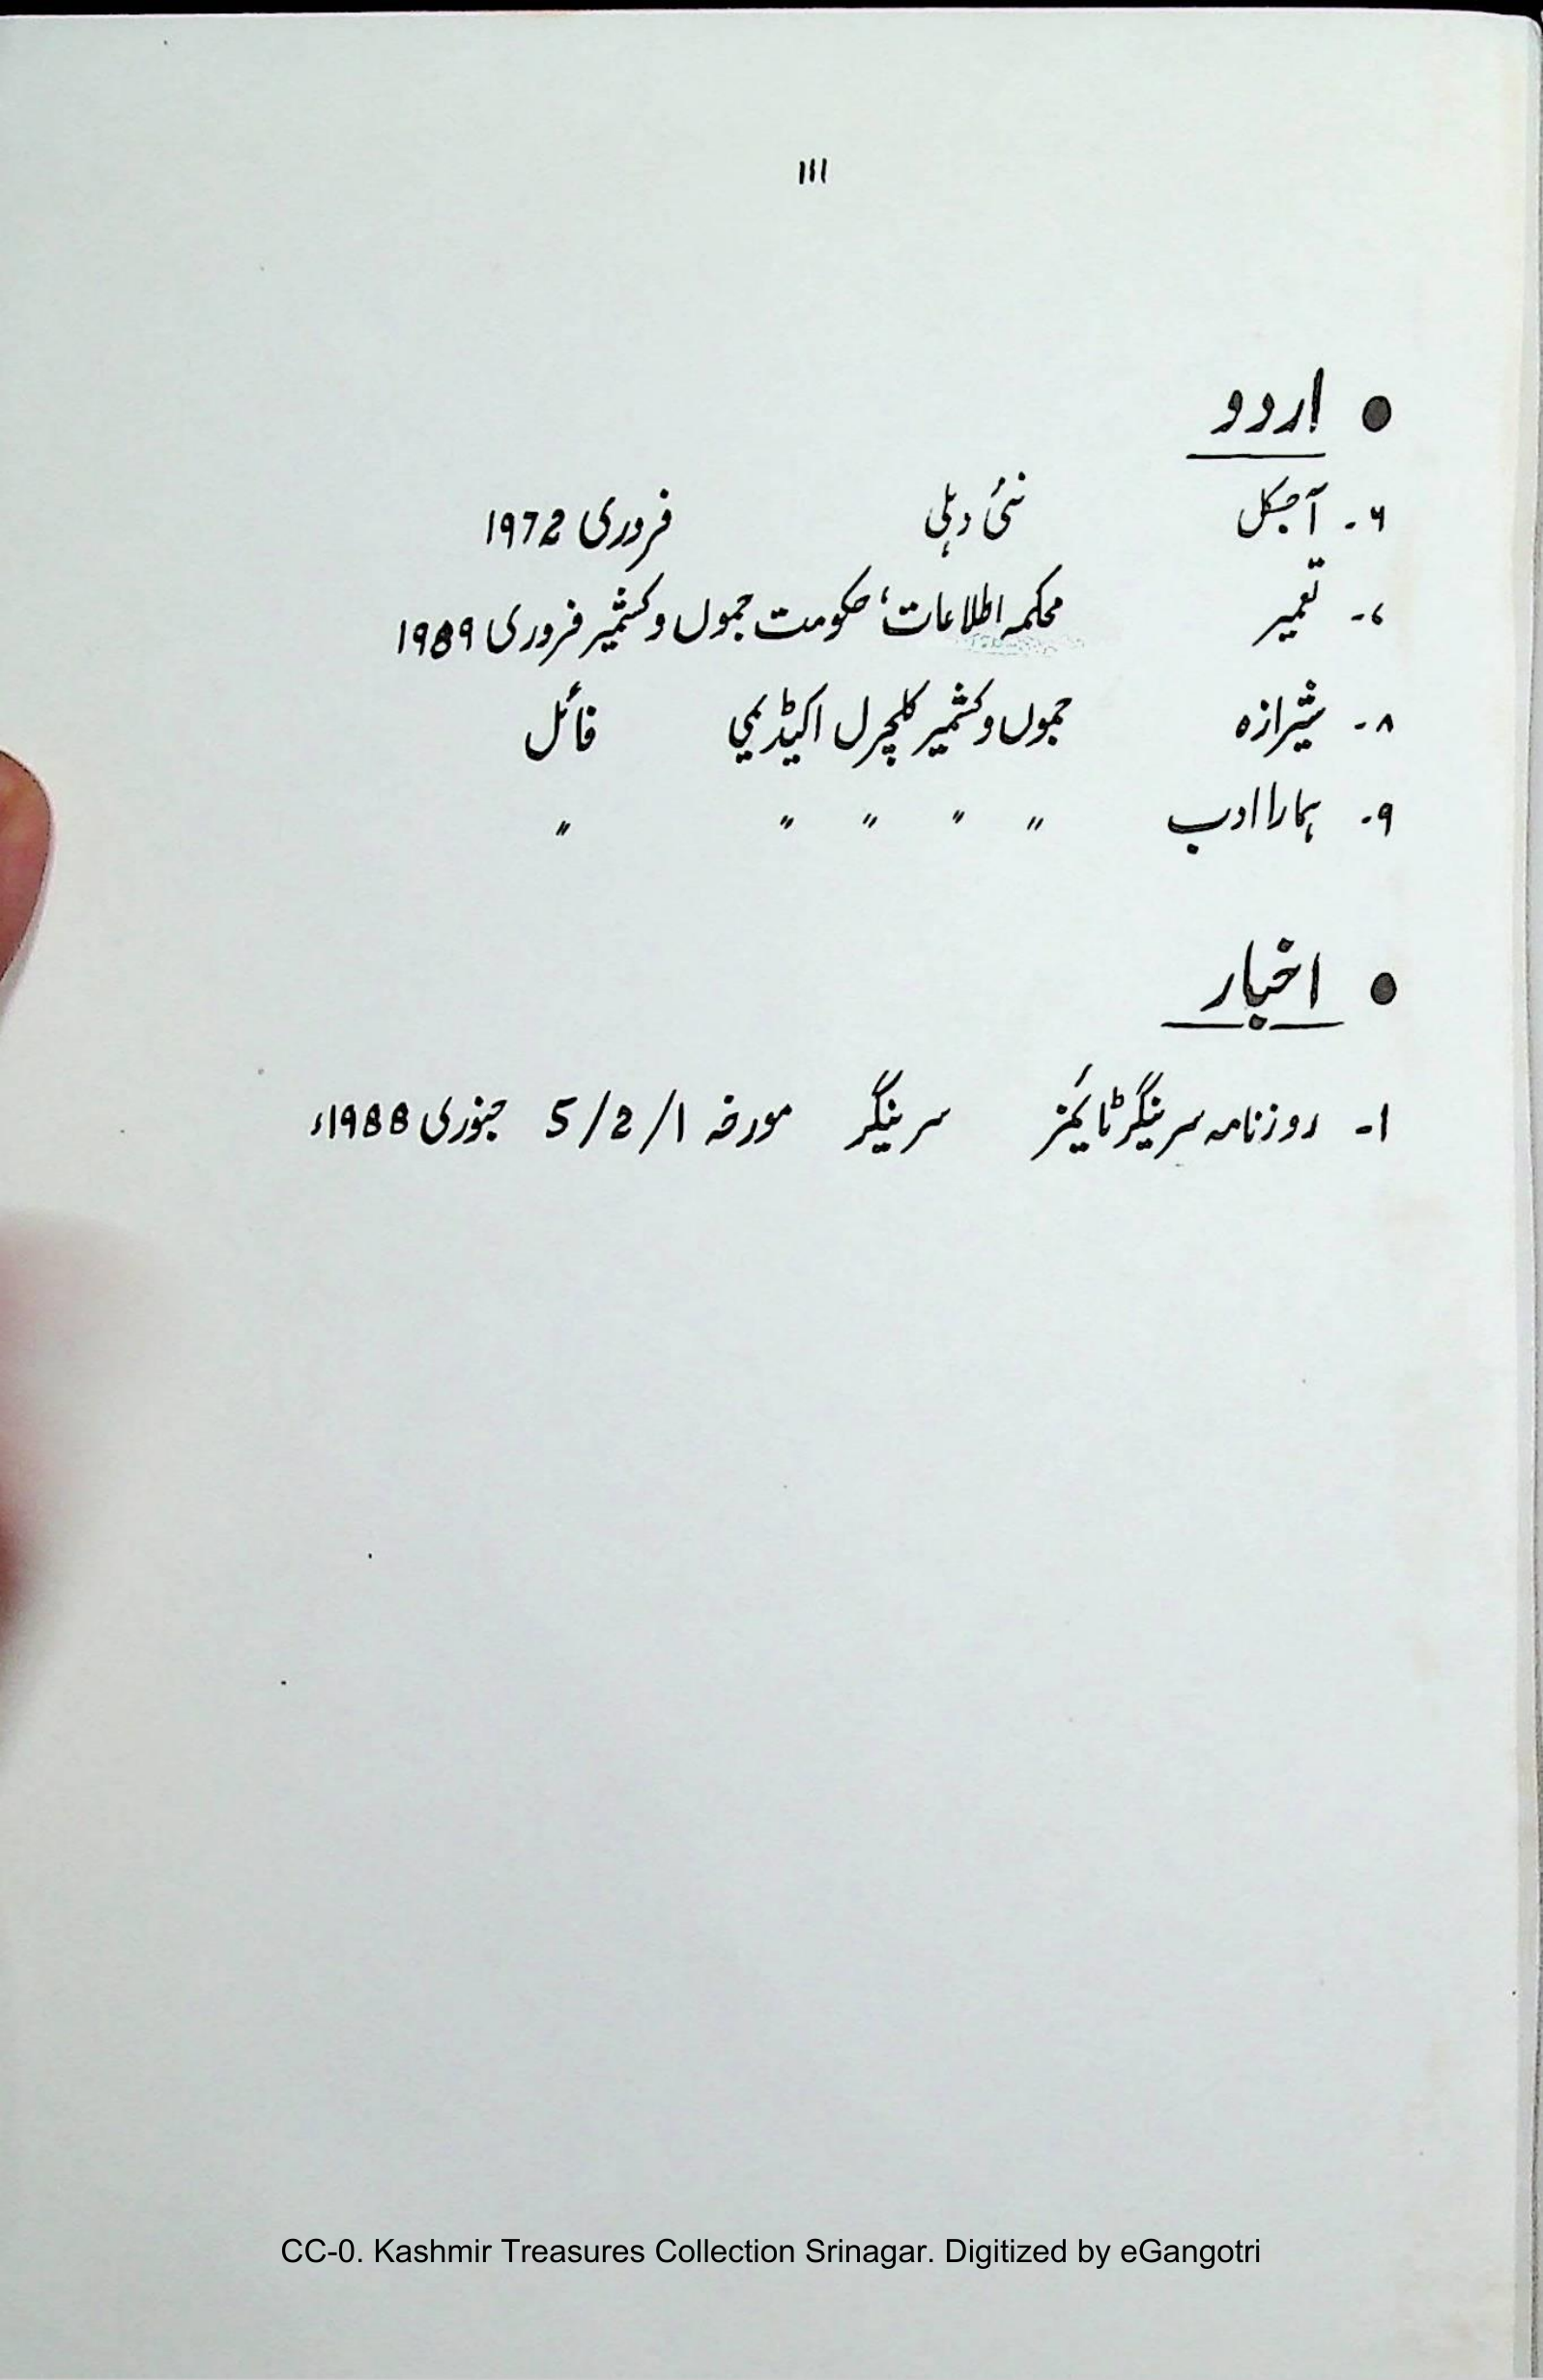 ۱۱۱
● اردو
۶۔ آجکل نئی دہلی فروری 1972
۷۔ تعمیر محکمہ اطلاعات، حکومت جموں و کشمیر فروری 1989
۸۔ شیرازہ جموں و کشمیر کلچرل اکیڈیمی فائل
۹۔ ہمارا ادب 〃 〃 〃 〃 〃
● اخبار
۱۔ روزنامہ سرینگر ٹائیمز سرینگر مورخہ 1/2/5 جنوری 1988ء
CC-0. Kashmir Treasures Collection Srinagar. Digitized by eGangotri